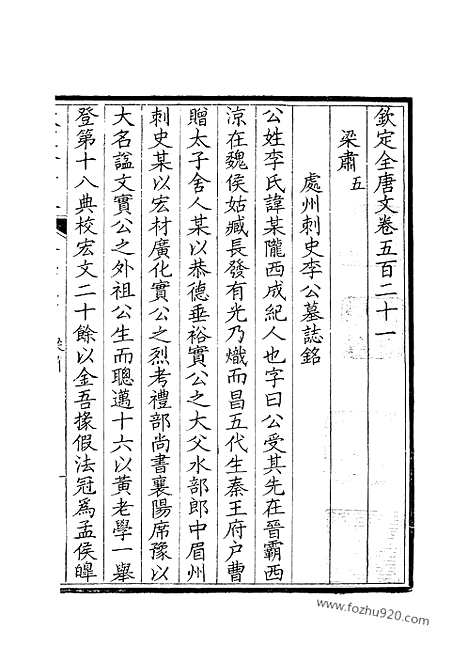 欽定全唐文卷五百二十一
梁肅五
處州刺史李公墓誌銘
公姓李氏諱某隴西成紀人也字曰公受其先在晉霸西
涼在魏侯姑臧長發有光乃熾而昌五代生秦王府戶曹
贈太子舍人某以恭德垂裕實公之大父水部郎中眉州
刺史某以宏材廣化實公之烈考禮部尚書襄陽席豫以
大名諡文實公之外祖公生而聰邁十六以黃老學一舉
登第十八典校宏文二十餘以金吾掾假法冠為孟侯皡
www.fozhu920.com